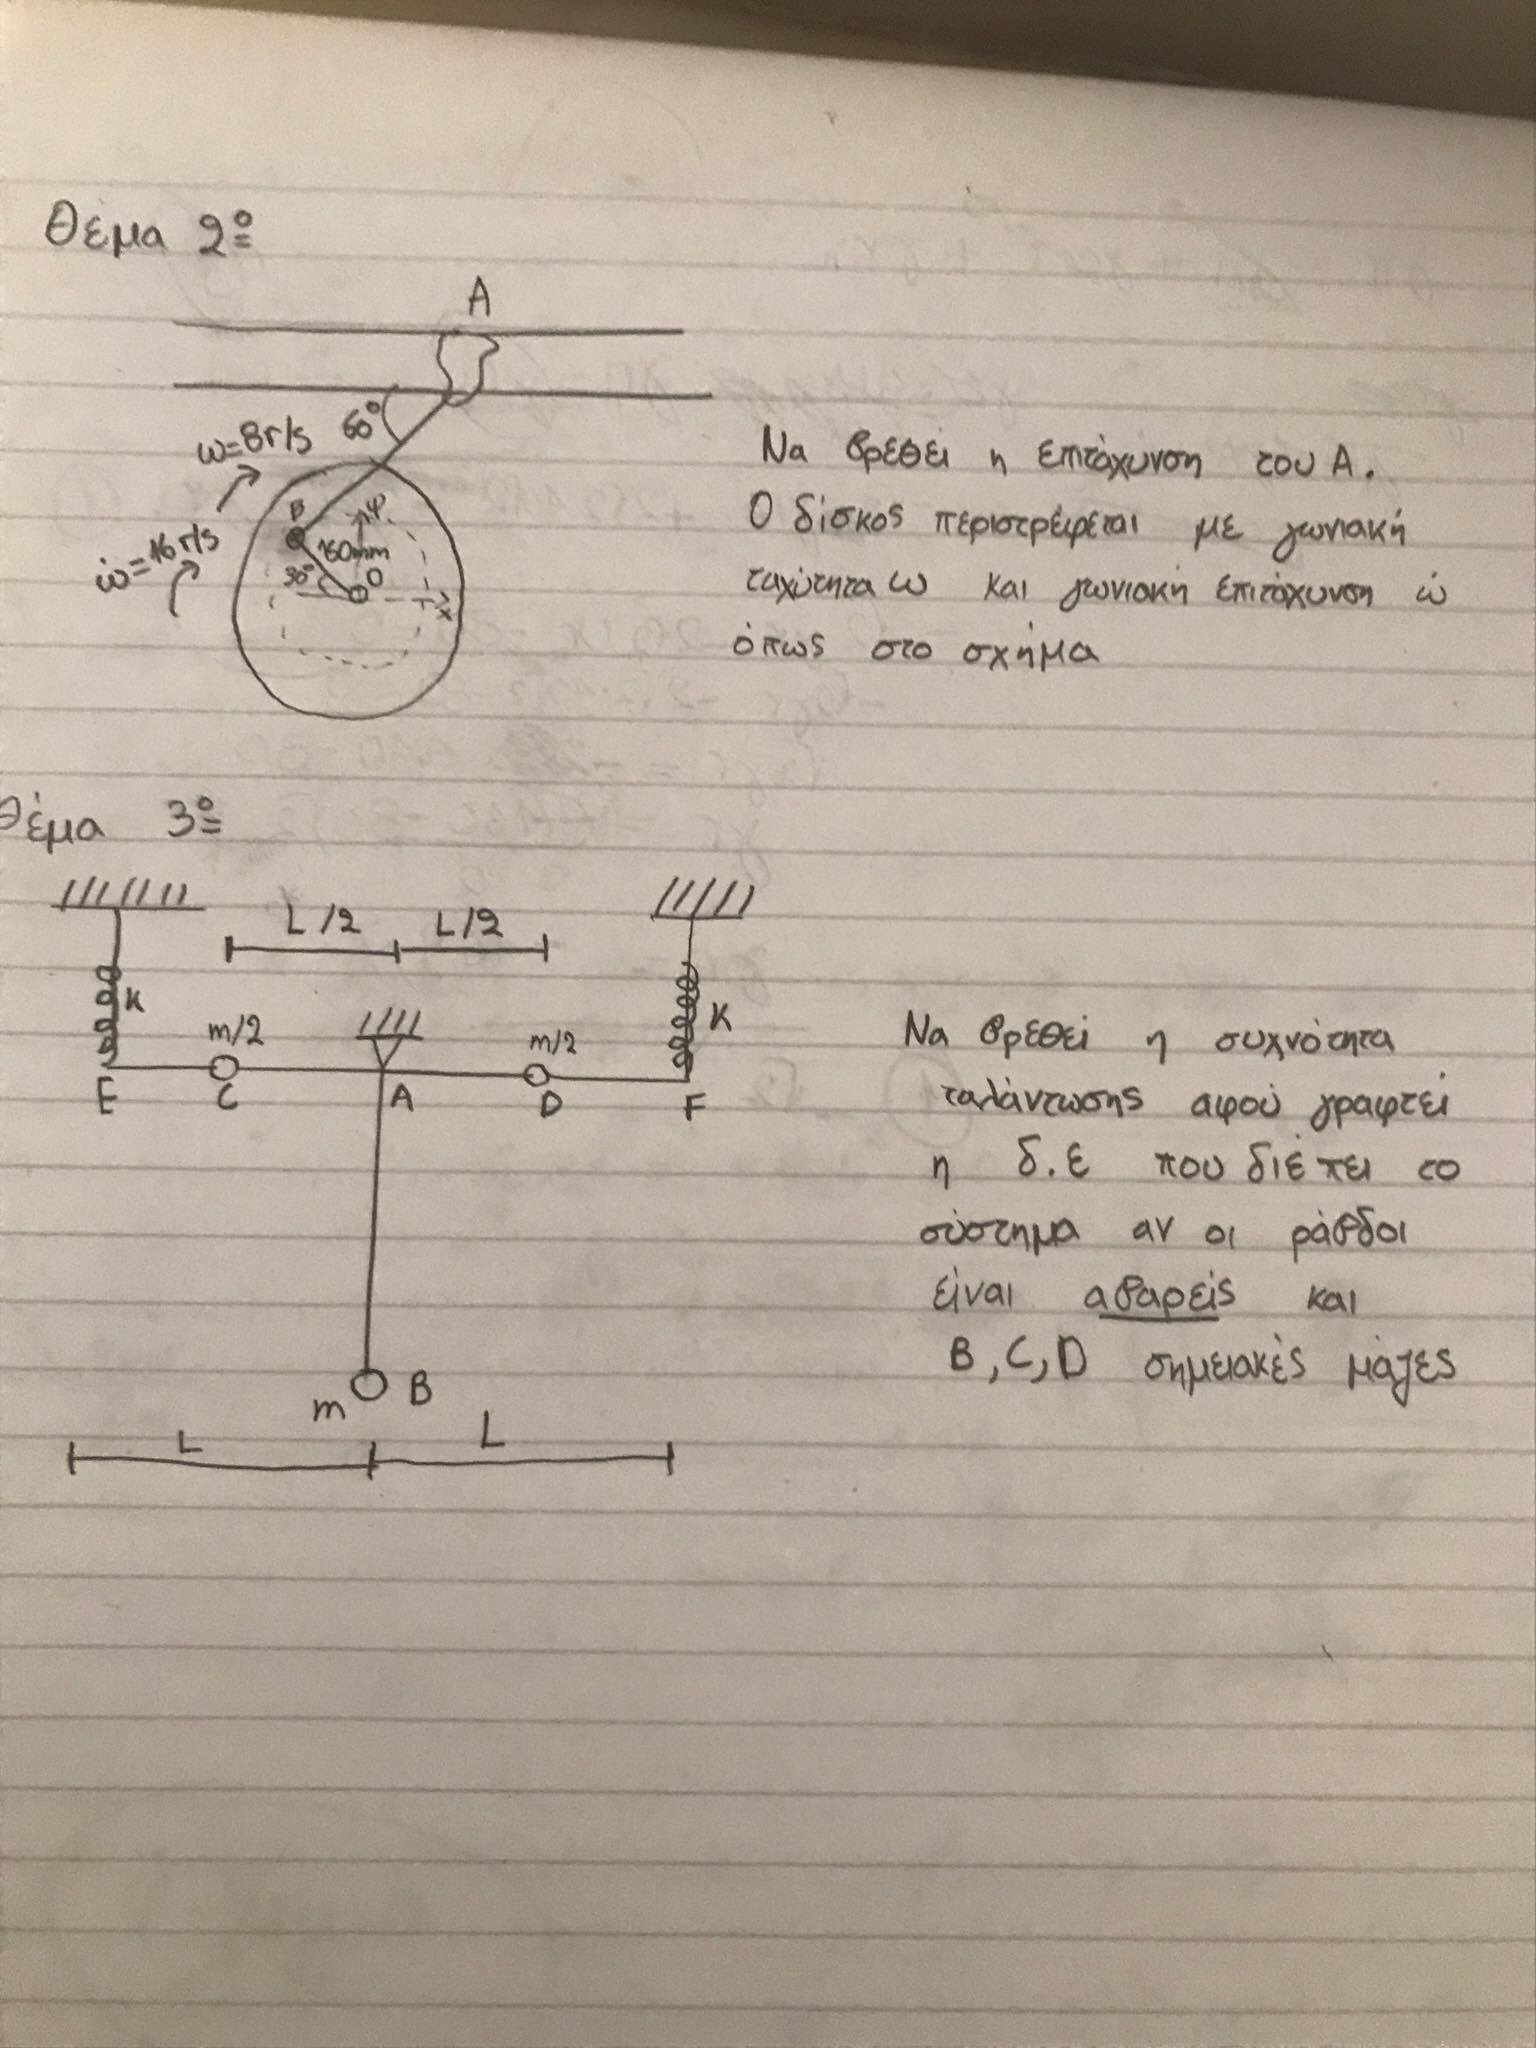 Θέμα 2º
A
60°
ω=8r/s
ώ=16r/s
B
ψ
150mm
30°
O
x
Να βρεθεί η επιτάχυνση του Α.
Ο δίσκος περιστρέφεται με γωνιακή
ταχύτητα ω και γωνιακή επιτάχυνση ώ
όπως στο σχήμα
Θέμα 3º
L/2 L/2
K K
m/2 m/2
E C A D F
m B
L L
Να βρεθεί η συχνότητα
ταλάντωσης αφού γραφτεί
η δ.ε που διέπει το
σύστημα αν οι ράβδοι
είναι αβαρείς και
B, C, D σημειακές μάζες